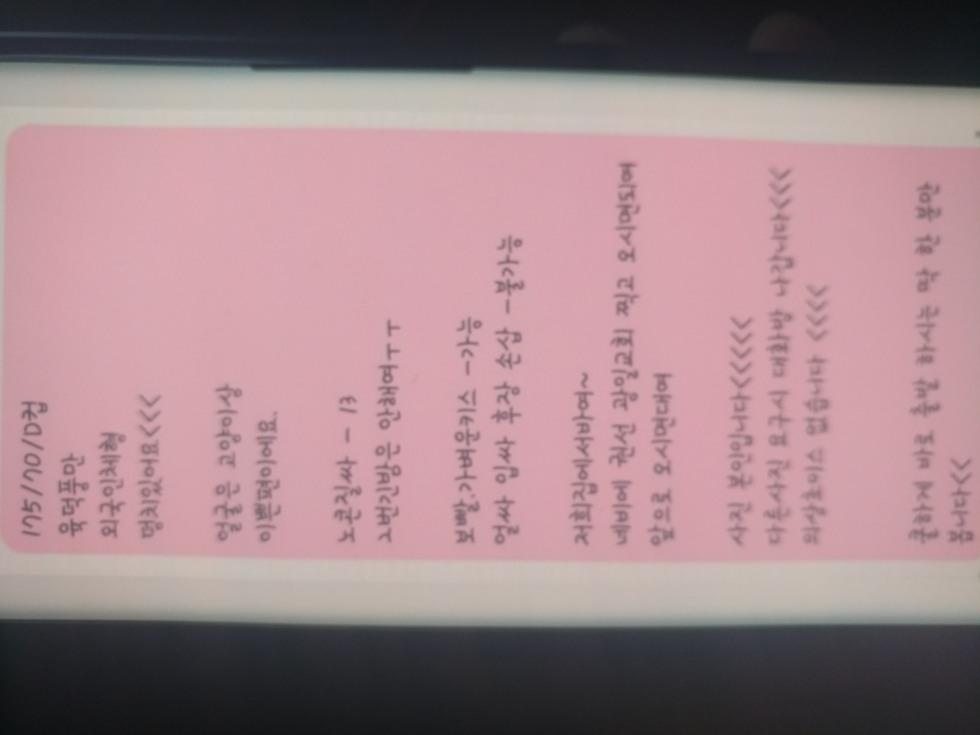 175/70/D컵
육덕풍만
외국인체형
덩치있어요<<<
얼굴은 고양이상
이쁜편이에요.
노콘질싸 - 13
2번긴밤은 안해여ㅜㅜ
보빨.가벼운키스 -가능
얼싸 입싸 후장 손삽 -불가능
저희집에서바여~
네비에 권선 광일교회 찍고 오시면되여
앞으로 오시면대여
사진 본인입니다<<<<<
다른사진 요구시 대화방 나갑니다<<<
외상초이스 없습니다 <<<<
쿨하게 바로 출발 하시는 딱 한 분만
봅니다<<